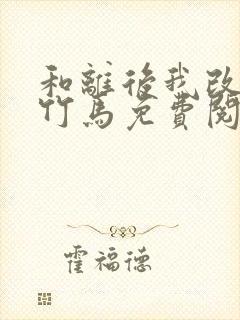 和離後我改
竹馬免費閱
霍福德